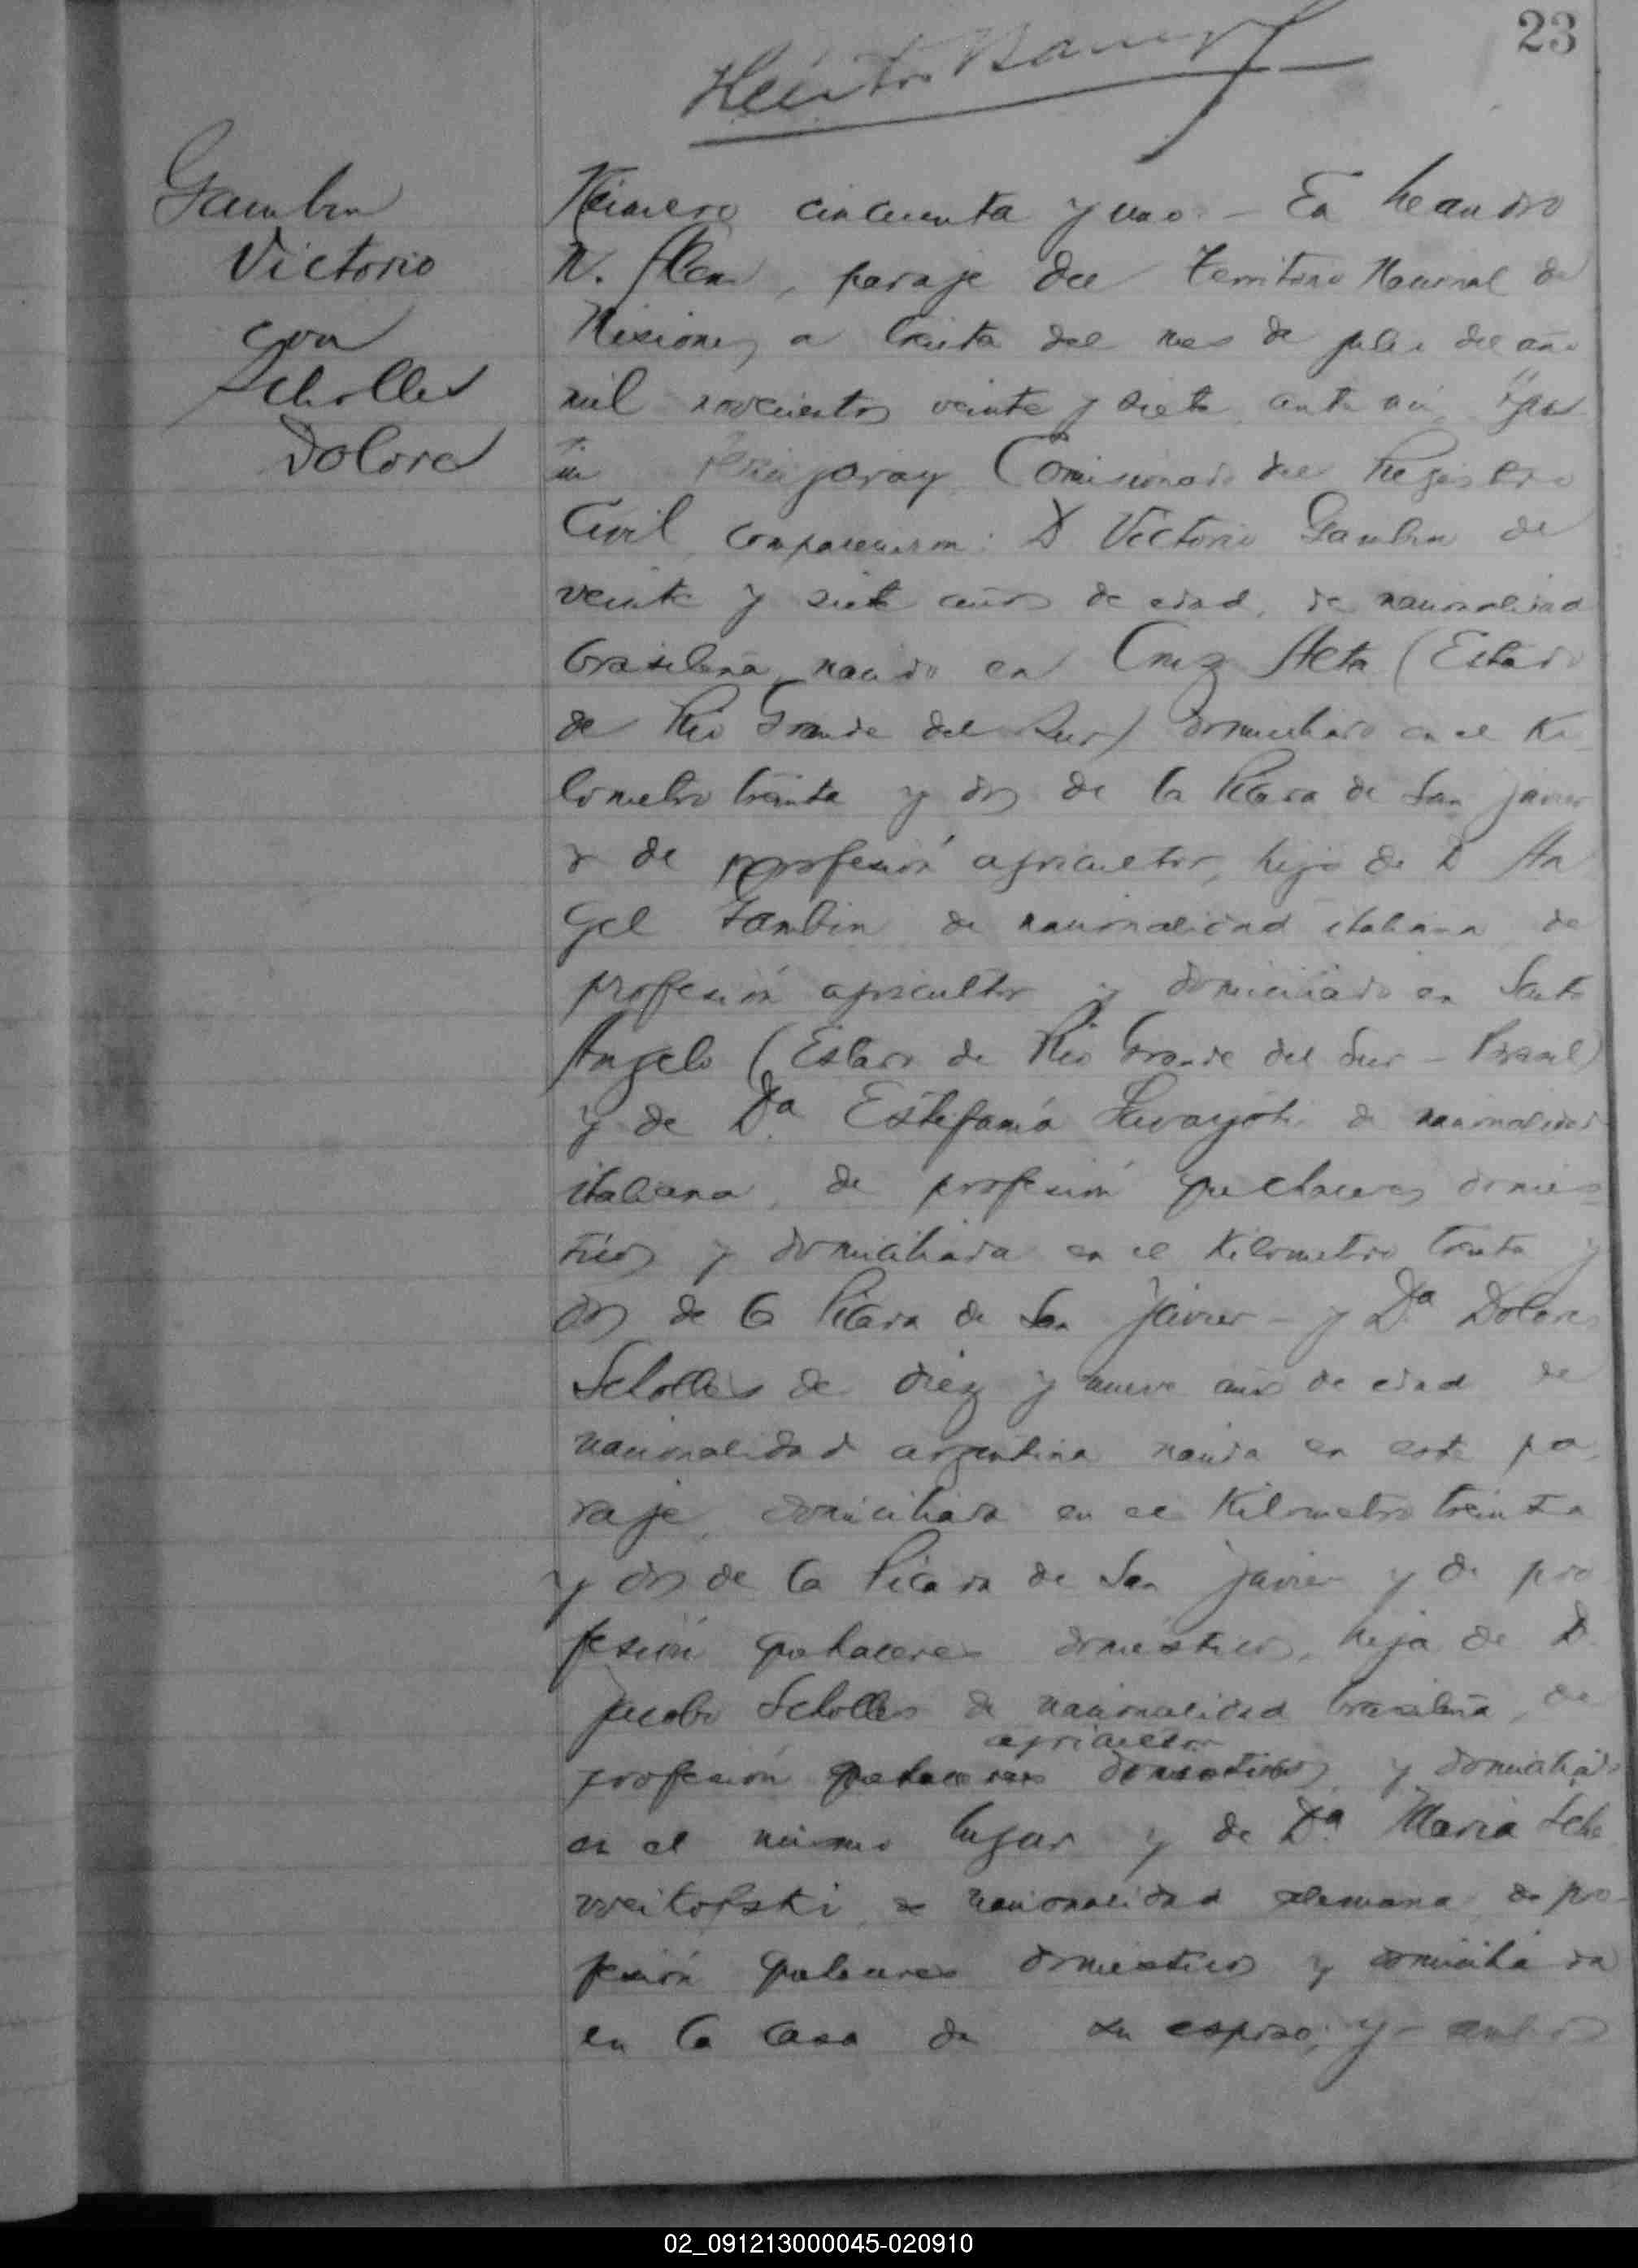 23
Gambin
Victorio
con
Scholles
Dolores
Número cincuenta y uno. - En Leandro
N. Alem, paraje del Territorio Nacional de
Misiones, a treinta del mes de julio del año
mil novecientos veinte y siete, ante mí,
Comisionado del Registro
Civil, comparecieron: D Victorio Gambin de
veinte y siete años de edad, de nacionalidad
brasileña, nacido en Cruz Alta (Estado
de Rio Grande del Sur) domiciliado en el Ki
lometro treinta y dos de la Picada de San Javier
y de profesión agricultor, hijo de D An
gel Gambin de nacionalidad italiana, de
profesión agricultor y domiciliado en Santo
Angelo (Estado de Rio Grande del Sur - Brasil)
y de Dª Estefanía de nacionalidad
italiana, de profesión quehaceres domes
ticos y domiciliada en el Kilometro treinta y
dos de la Picada de San Javier - y Dª Dolores
Scholles de diez y nueve años de edad de
nacionalidad argentina nacida en este pa
raje, domiciliada en el Kilometro treinta
y dos de la Picada de San Javier y de pro
fesión quehaceres domésticos, hija de D.
Jacobo Scholles de nacionalidad brasileña, de
agricultor
profesión quehaceres domesticos y domiciliado
en el mismo lugar y de Dª Maria Sch
weikofski, de nacionalidad alemana, de pro
fesión quehaceres domesticos y domicilia da
en la casa de su esposo; y ambos
02_091213000045-020910